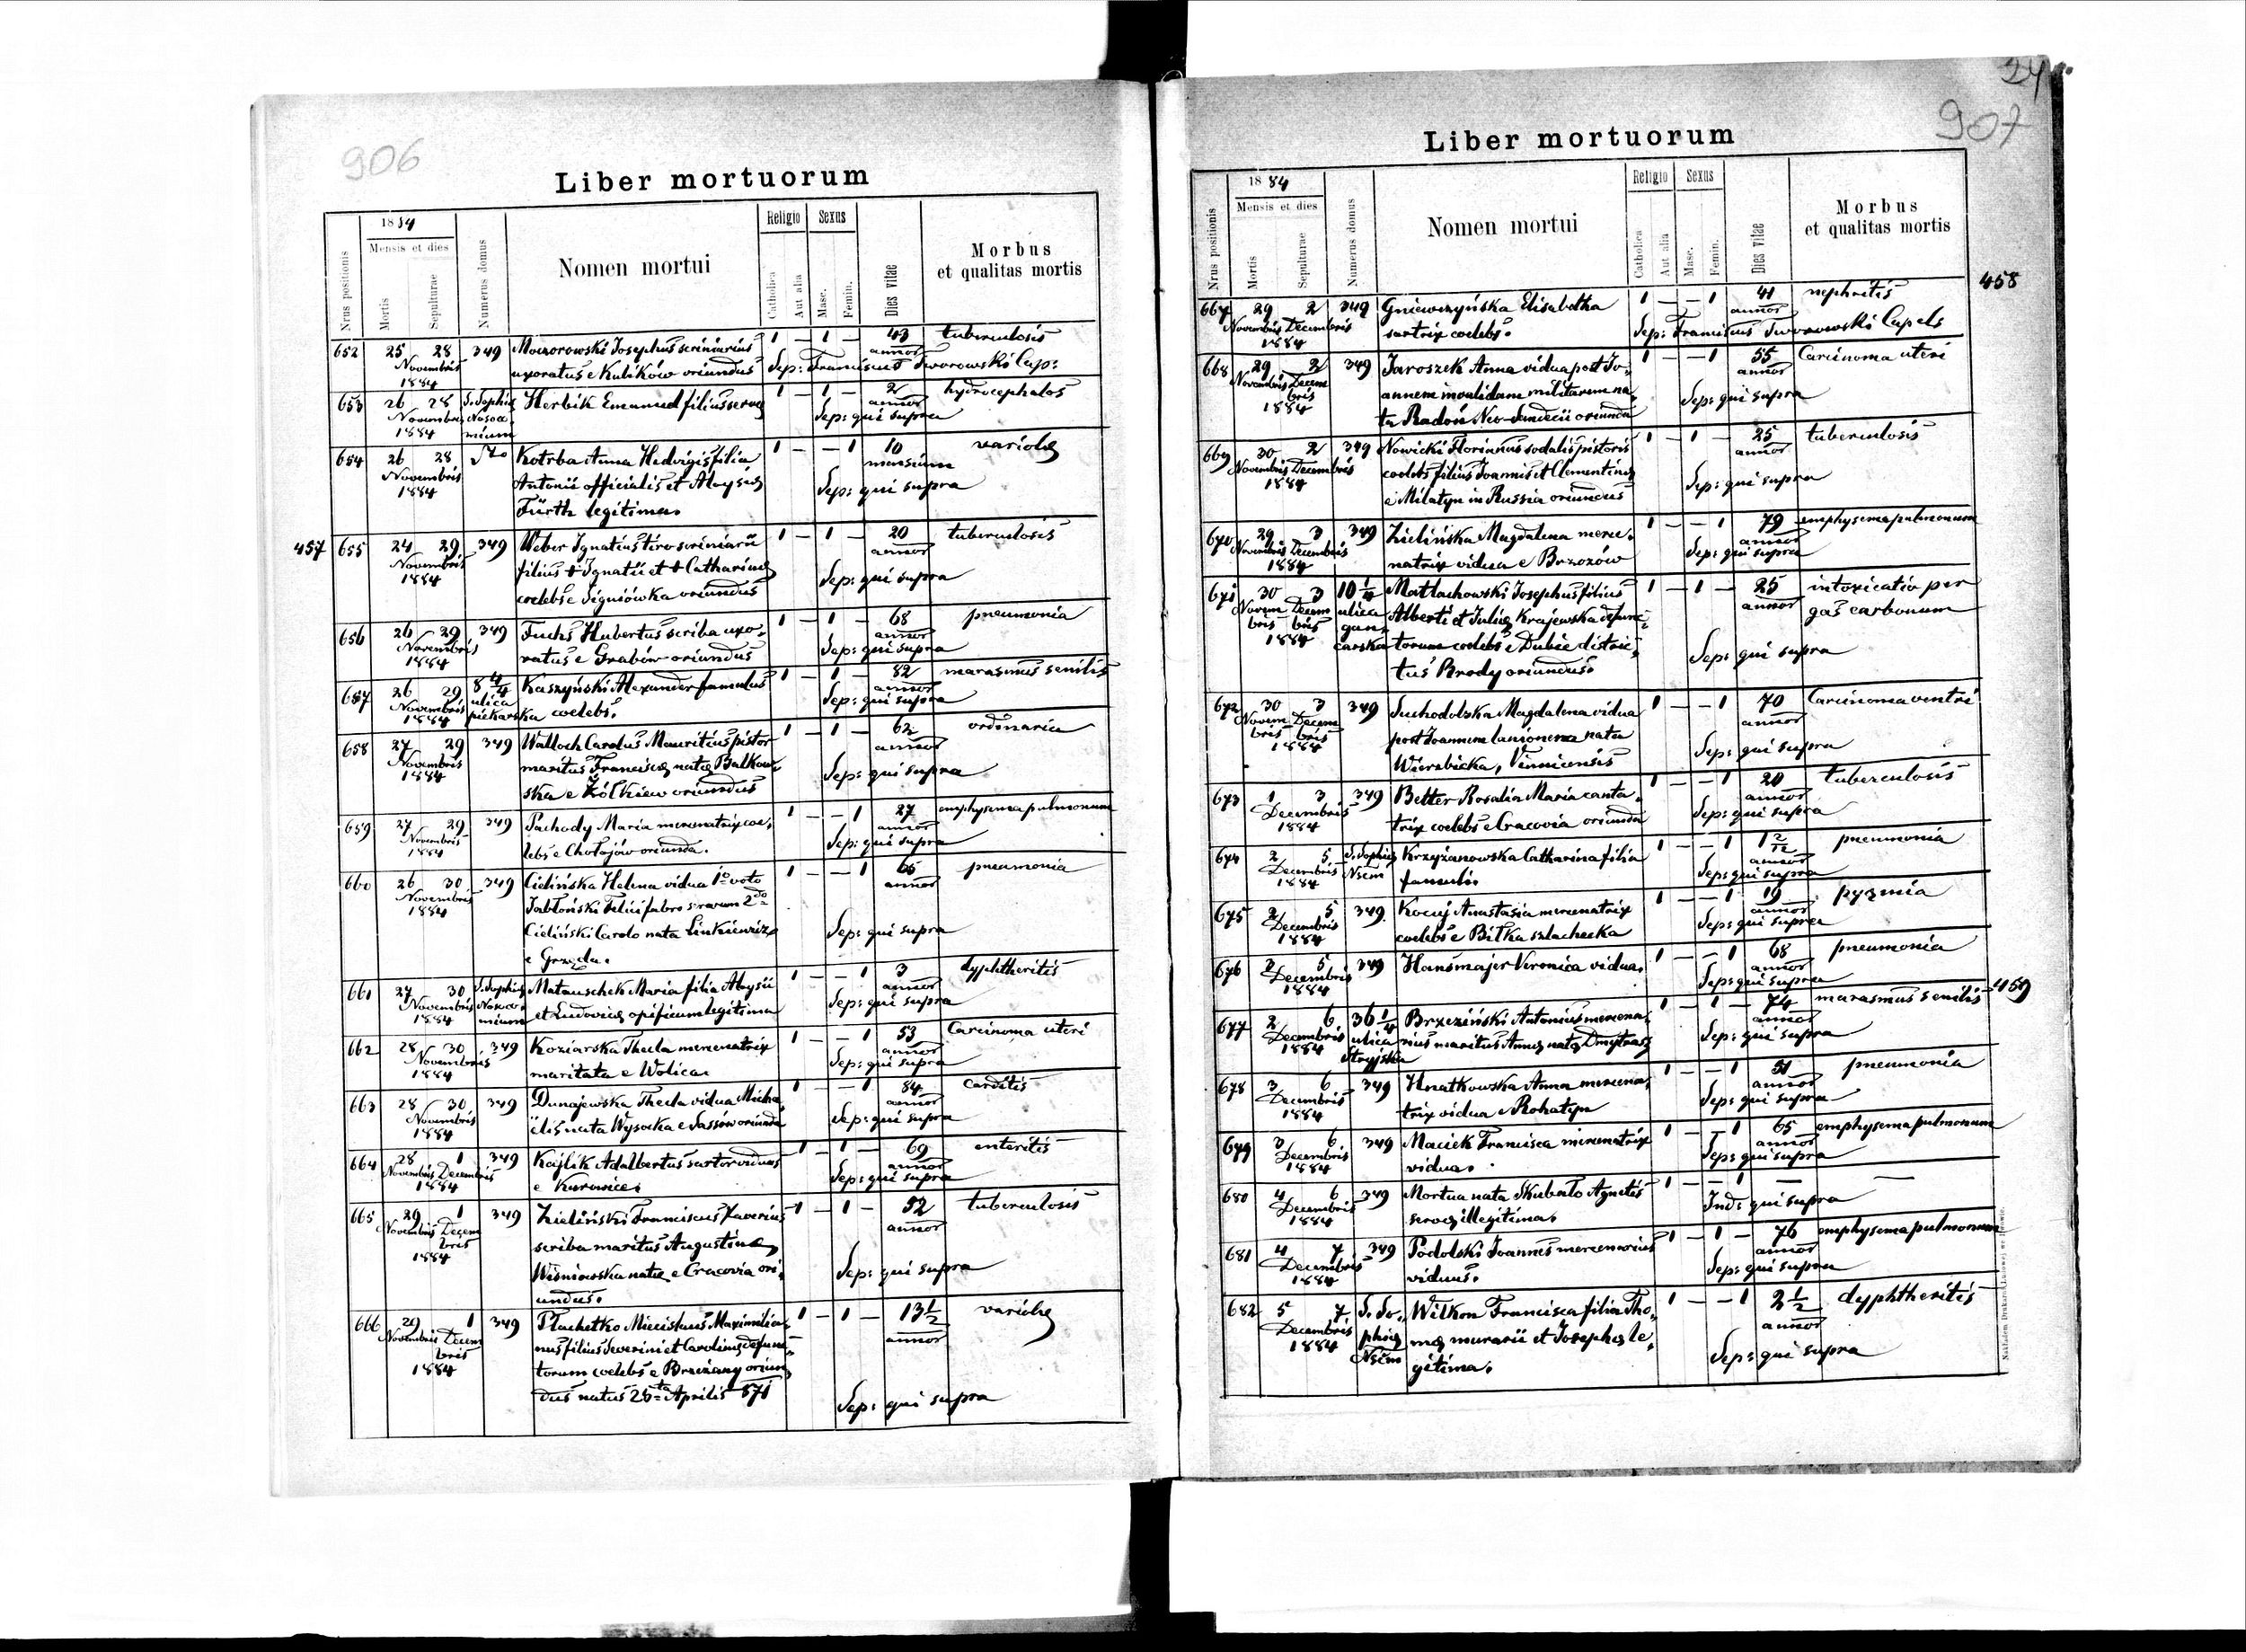 906
Liber mortuorum
Nrus positionis
1884
Mensis et dies
Mortis
Sepulturae
Numerus domus
Nomen mortui
Religio
Catholica
Aut alia
Sexus
Masc.
Femin.
Dies vitae
Morbus
et qualitas mortis
652 25 28 349 Moczorowski Josephus scriniarius 1 — 1 — 43 tuberculosis
Novembris uxoratus e Kulików oriundus annor
1884 Sep: Franciscus Tworowski Cap:
653 26 28 S. Sophię Herbik Emanuel filius servę 1 — 1 — 2 hydrocephalos
Novembris Nosoco annor
1884 mium Sep: qui supra
654 26 28 Kotrba Anna Hedvigis filia 1 — — 1 10 variolę
Novembris Antonii officialis et Aloysię mensium
1884 Fürth legitima. Sep: qui supra
457 655 24 29 349 Weber Ignatius tiro scriniarii 1 — 1 — 20 tuberculosis
Novembris filius + Ignatii et + Catharinę annor
1884 coelebs e Signiówka oriundus Sep: qui supra
656 26 29 349 Fuchs Hubertus scriba uxo, 1 — 1 — 68 pneumonia
Novembris ratus e Grabów oriundus annor
1884 Sep: qui supra
657 26 29 8 4/4 Kaszyński Alexander famulus 1 — 1 — 82 marasmus senilis
Novembris ulica coelebs. annor
1884 piekarska Sep: qui supra
658 27 29 349 Walloch Carolus Mauritius pistor 1 — 1 — 62 ordinaria
Novembris maritus Francisię natę Balkow- annor
1884 ska e Żółkiew oriundus Sep: qui supra
659 27 29 349 Pachody Maria mercenatrix coe, 1 — — 1 27 emphysema pulmonum
Novembris lebs e Chołojów oriunda. annor
1884 Sep: qui supra
660 26 30 349 Cielińska Helena vidua 1o voto 1 — — 1 65 pneumonia
Novembris Jabłoński Felici fabro 2do annor
1884 Cieliński Carolo nata Linkiewicz
e Grzęda. Sep: qui supra
661 27 30 S. Sophię Matauschek Maria filia Aloysii 1 — — 1 3 dyphtheritis
Novembris Nosoco- et Ludovicę opificum legitima annor
1884 mium Sep: qui supra
662 28 30 349 Koziarska Thecla mercenatrix 1 — — 1 53 Carcinoma uteri
Novembris maritata e Wolica. annor
1884 Sep: qui supra
663 28 30 349 Dunajewska Thecla vidua Micha, 1 — — 1 84 carditis
Novembris ëlis nata Wysocka e Sassów oriunda annor
1884 Sep: qui supra
664 28 1 349 Kajlik Adalbertus sartor viduus 1 — 1 — 69 enteritis
Novembris Decembris e Kurowice. annor
1884 Sep: qui supra
665 29 1 349 Zieliński Franciscus Xaverius 1 — 1 — 52 tuberculosis
Novembris Decem scriba maritus Augustinę annor
bris Wiśniowska natę e Cracovia ori,
1884 undus. Sep: qui supra
666 29 1 349 Płachetko Miecislaus Maximilia, 1 — 1 — 13 1/2 variolę
Novembris Decem nus filius Severini et Carolinę defunc- annor
bris torum coelebs e Brzeżany oriun,
1884 dus natus 25ta Aprilis 871 Sep: qui supra
907
Liber mortuorum
Nrus positionis
1884
Mensis et dies
Mortis
Sepulturae
Numerus domus
Nomen mortui
Religio
Catholica
Aut alia
Sexus
Masc.
Femin.
Dies vitae
Morbus
et qualitas mortis
458
667 29 2 349 Gniewczyńska Elisabetha 1 — — 1 41 nephritis
Novembris Decembris sartrix coelebs. annor
1884 Sep: Franciscus Tworowski Capels
668 29 2 349 Jaroszek Anna vidua post Jo, 1 — — 1 55 Carcinoma uteri
Novembris Decem annem invalidum militarem na, annor
bris ta Radoń Neo-Sandecii oriunda Sep: qui supra
1884
669 30 2 349 Nowicki Florianus sodalis pistoris 1 — 1 — 25 tuberculosis
Novembris Decembris coelebs filius Joannis et Clementinę annor
1884 e Milatyn in Russia oriundus Sep: qui supra
670 29 3 349 Zielińska Magdalena merce, 1 — — 1 79 emphysema pulmonum
Novembris Decembris natrix vidua e Brzozów annor
1884 Sep: qui supra
671 30 3 10 1/4 Matlachowski Josephus filius 1 — 1 — 25 intoxicatio per
Novem Decem ulica Alberti et Julię Krajewska defunc- annor gas carbonum
bris bris garn- torum coelebs e Dubie distric,
1884 carska tus Brody oriundus. Sep: qui supra
672 30 3 349 Suchodolska Magdalena vidua 1 — — 1 70 Carcinoma ventri
Novem Decem post Joannem lanionem nata annor
bris bris Wierzbicka, Vinniensis Sep: qui supra
1884
673 1 3 349 Better Rosalia Maria canta, 1 — — 1 20 tuberculosis
Decembris trix coelebs e Cracovia oriunda annor
1884 Sep: qui supra
674 2 5 S. Sophię Krzyżanowska Catharina filia 1 — — 1 1 2/12 pneumonia
Decembris Nscm famuli. annor
1884 Sep: qui supra
675 2 5 349. Kocuj Anastasia mercenatrix 1 — — 1 19 pyęmia
Decembris coelebs e Biłka szlachecka annor
1884 Sep: qui supra
676 3 5 349 Hansmajer Veronica vidua. 1 — — 1 68 pneumonia
Decembris annor
1884 Sep: qui supra
459
677 2 6 36 1/4 Brzeziński Antonius mercena, 1 — 1 — 74 marasmus senilis
Decembris ulica rius maritus Annę natę Dmytrasz annor
1884 Stryjska Sep: qui supra
678 3 6 349 Hnatkowska Anna mercena, 1 — — 1 51 pneumonia
Decembris trix vidua e Rohatyn annor
1884 Sep: qui supra
679 3 6 349 Maciek Francisca mercenatrix 1 — — 1 65 emphysema pulmonum
Decembris vidua. annor
1884 Sep: qui supra
680 4 6 349 Mortua nata Skubało Agnetis 1 — — 1 — —
Decembris servę illegitima. Ind: qui supra
1884
681 4 7 349 Podolski Joannes mercenarius 1 — 1 — 76 emphysema pulmonum
Decembris viduus. annor
1884 Sep: qui supra
682 5 7 S. So, Wilkon Francisca filia Tho, 1 — — 1 2 1/2 dyphtheritis
Decembris phię mę murarii et Josephę le, annor
1884 Nscm gitima. Sep: qui supra